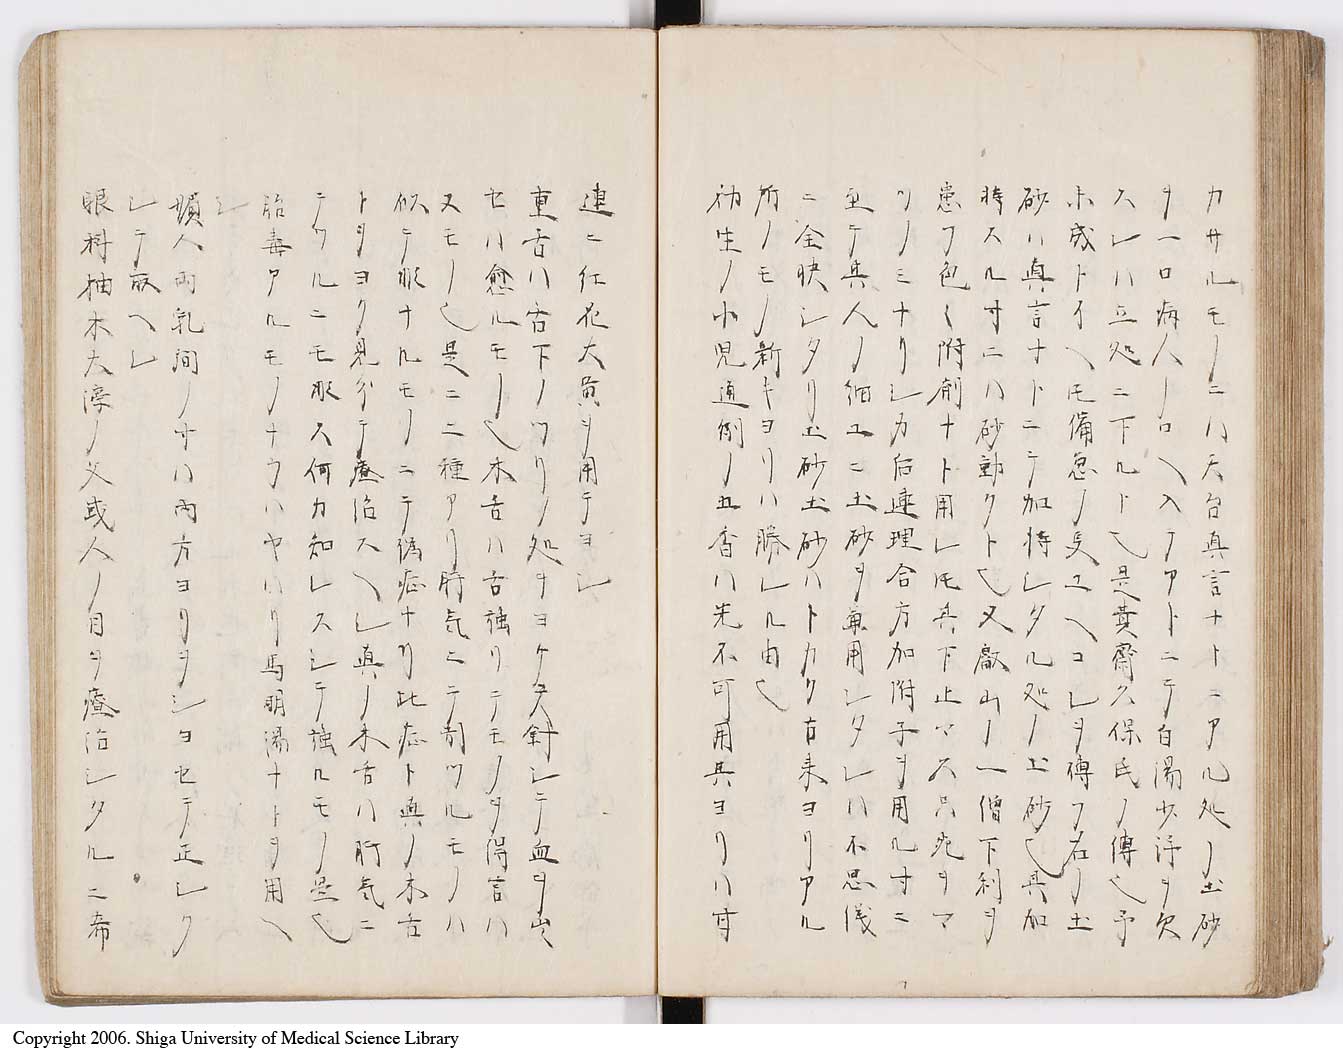 カサルモノニハ天台真言ナトニアル処ノ土砂
ヲ一口病人ノ口ヘ入テアトニテ白湯少許ヲ欠
スレハ立処ニ下ルト也是黄齋久保氏ノ傳也予
未成トイヘ𪜈備急ノ為ユヘコレヲ傳フ右ノ土
砂ハ真言ナトニテ加持シタル処ノ土砂也其加
持スル寸ニハ砂動クト也又叡山ノ一僧下利ヲ
患フ色々附剤ナト用レ𪜈其下止マス只死ヲマ
ツノミナリシカ后連理合方加附子ヲ用ル寸ニ
至テ其人ノ細工ニ土砂ヲ兼用シタレハ不思儀
ニ全快シタリ土砂土砂ハトカク古来ヨリアル
所ノモノ新キヨリハ勝レル由也
初生ノ小児通例ノ五香ハ先不可用其ヨリハ甘
連ニ紅花大黄ヲ用テヨシ
重舌ハ舌下ノツリノ処ヲヨケ火針シテ血ヲ出
セハ愈ルモノ也木舌ハ舌強リテモノヲ得言ハ
又モノ也是ニ二種アリ肝気ニテ制ツルモノハ
似テ形ナルモノニテ偽症ナリ此症ト真ノ木舌
トヲヨク見分テ療治スヘシ真ノ木舌ハ肝気ニ
テツルニモ形ス何カ知レスシテ強ルモノ是也
胎毒アルモノナラハヤハリ馬明湯ナトヲ用ヘ
シ
損人両乳間ノ寸ハ両方ヨリヲシヨセテ正シク
シテ取ヘシ
眼科柚木太淳ノ父或人ノ目ヲ療治シタルニ希
Copyright 2006. Shiga University of Medical Science Library